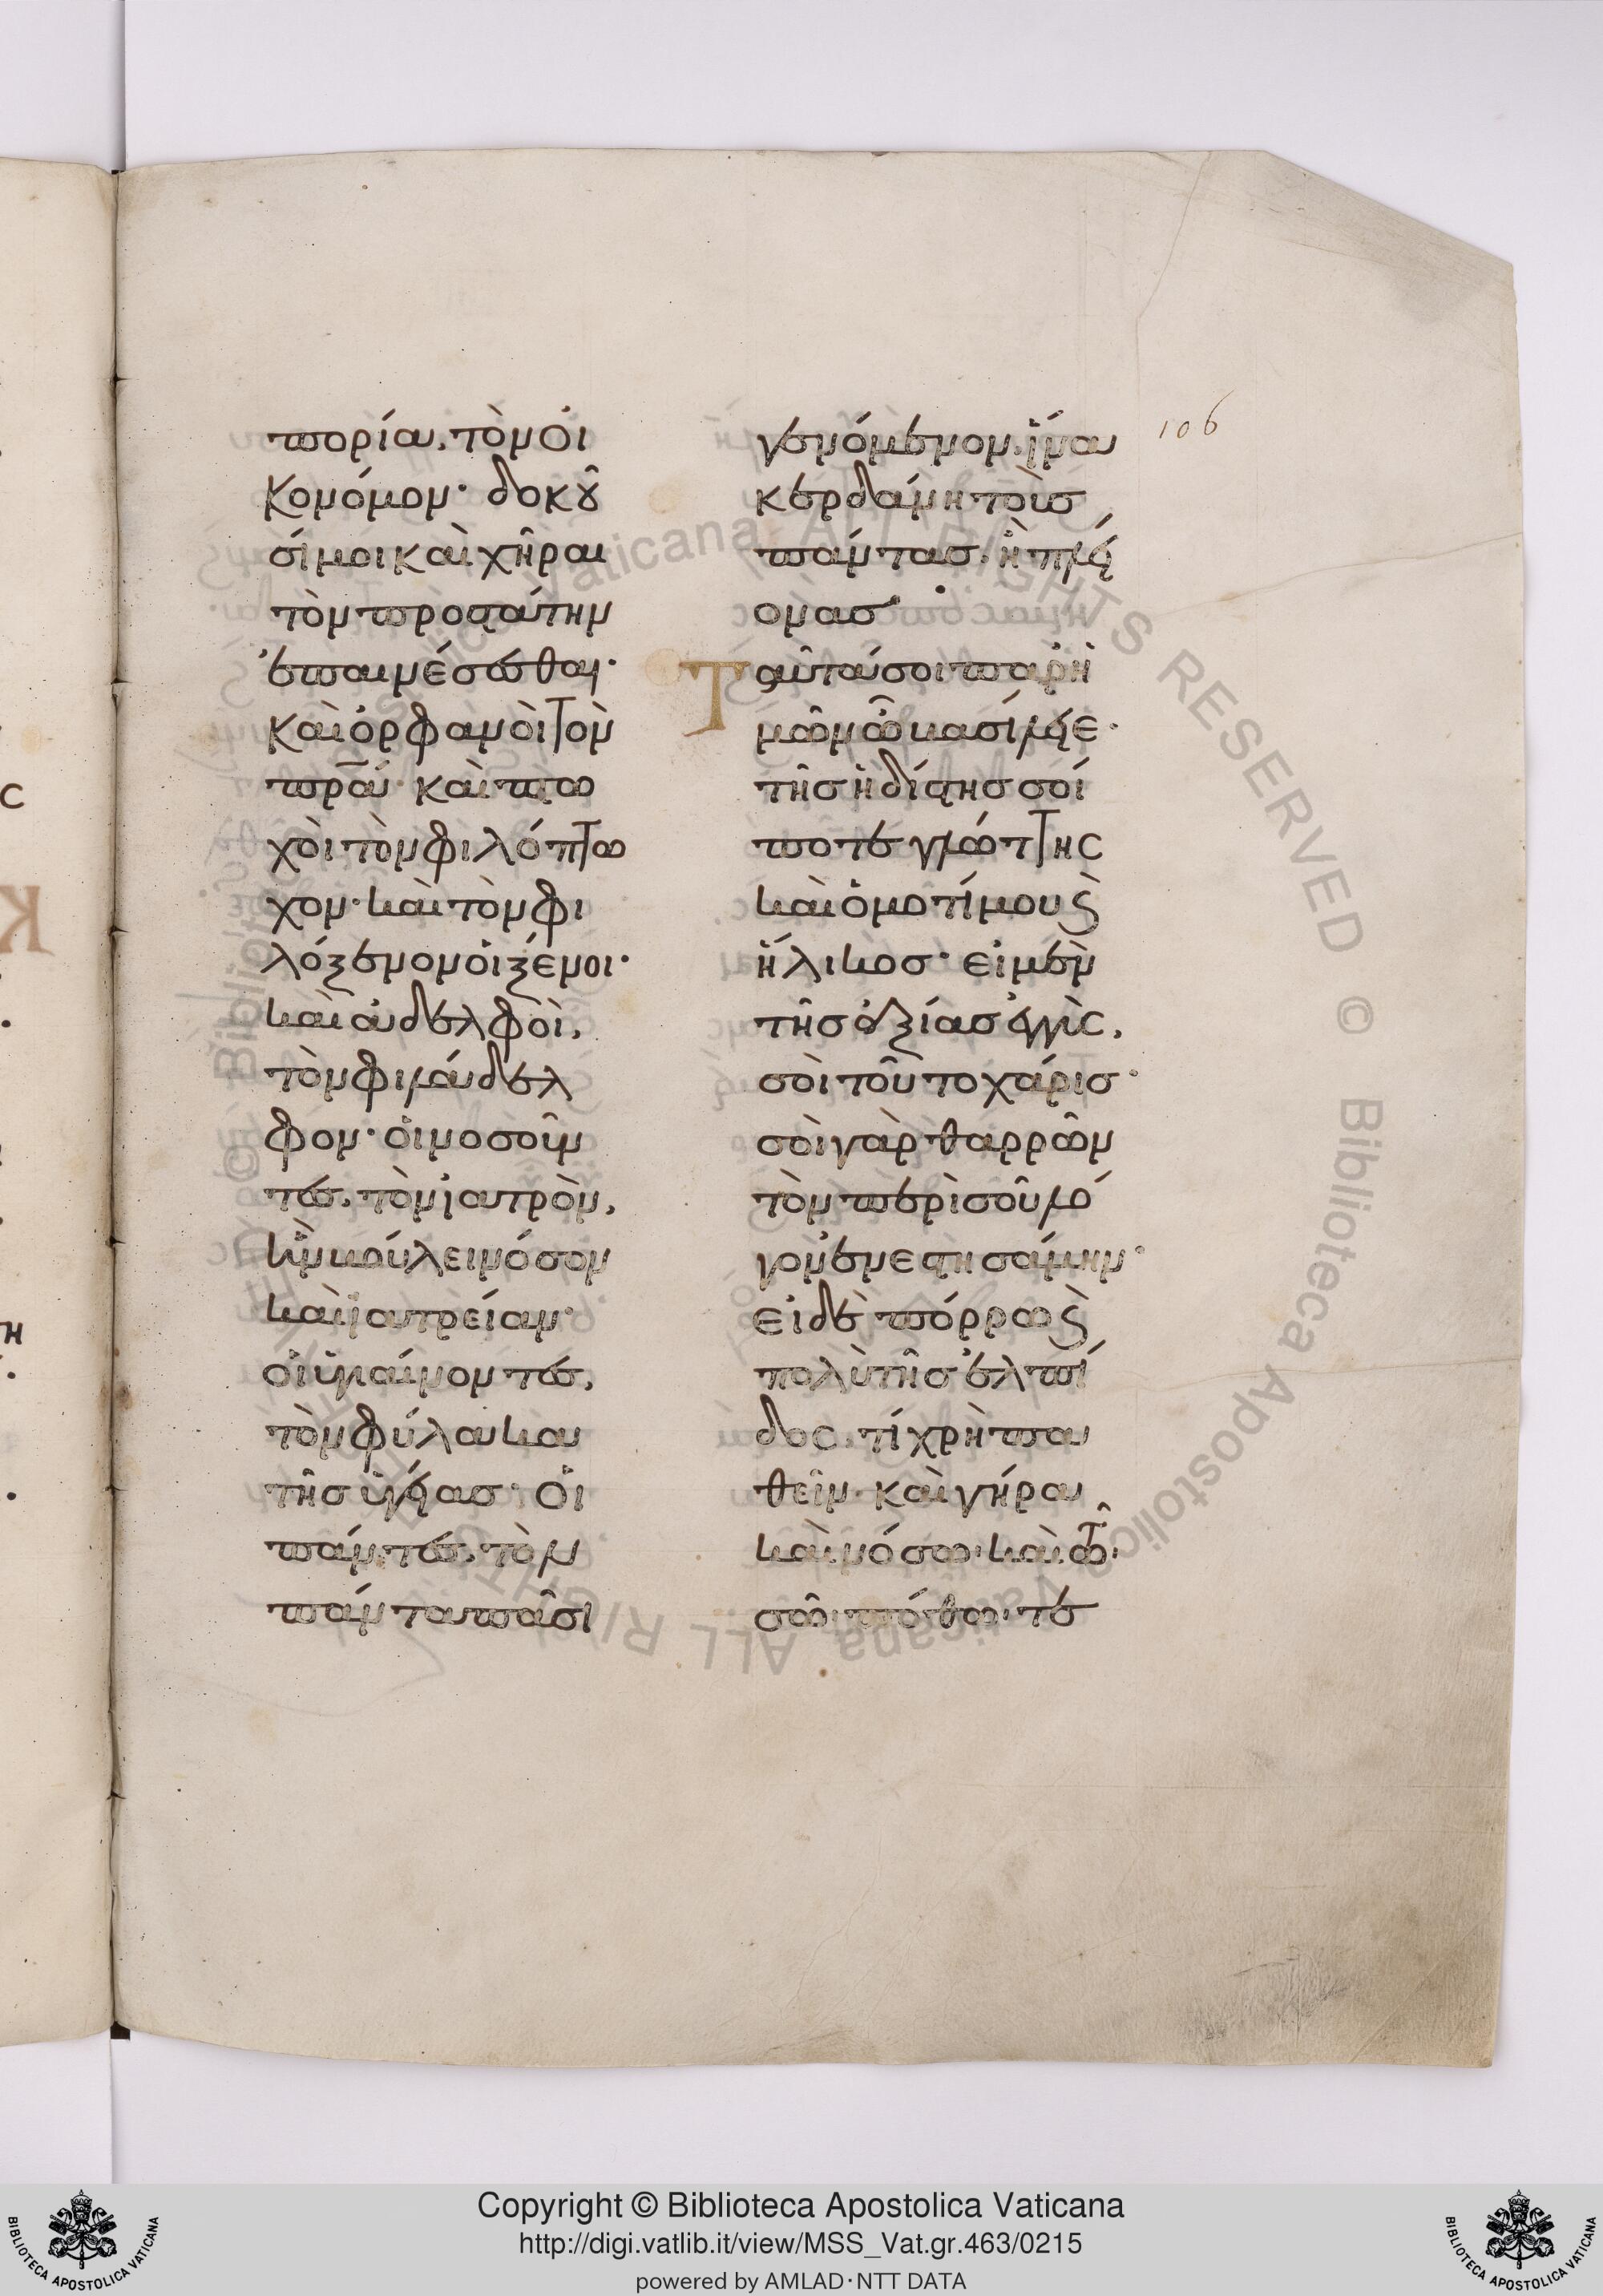 πορίαι, τὸν οἰ
κονόμον· δοκοῦ
σί μοι καὶ χῆραι
τὸν προστάτην
ἐπαινέσεσθαι·
καὶ ὀρφανοὶ τὸν
πρ̅α· καὶ πτω
χοὶ τὸν φιλόπτω
χον· καὶ τὸν φι
λόξενον οἱ ξένοι·
καὶ ἀδελφοὶ,
τὸν φιλάδελ
φον· οἱ νοσοῦν
τες, τὸν ἰατρὸν,
ἣν βούλει νόσον
καὶ ἰατρείαν·
οἱ ὑγιαίνοντες,
τὸν φύλακα
τῆς ὑγείας· οἱ
πάντες, τὸν
πάντα πᾶσι
γενόμενον, ἵνα
κερδάνη τοὺς
πάντας, ἢ πλεί
ονας·
Ταῦτά σοι παρ' ἡ
μῶν ὦ βασίλειε·
τῆς ἡδίστης σοί
ποτε γλώττης
καὶ ὁμοτίμου ϛ
ἥλικος· εἰ μὲν
τῆς ἀξίας ἐγγὺς,
σοὶ τοῦτο χάρις·
σοὶ γὰρ θαρρῶν
τὸν περὶ σοῦ λό
γον ἐνεστησάμην·
εἰ δὲ πόρρω ϛ
πολὺ τῆς ἐλπί
δος, τί χρὴ πα
θεῖν· καὶ γήρα
καὶ νόσω· καὶ τῶ
σῶ πόθω· τε
106
Copyright © Biblioteca Apostolica Vaticana
http://digi.vatlib.it/view/MSS_Vat.gr.463/0215
powered by AMLAD·NTT DATA
BIBLIOTECA APOSTOLICA VATICANA
BIBLIOTECA APOSTOLICA VATICANA